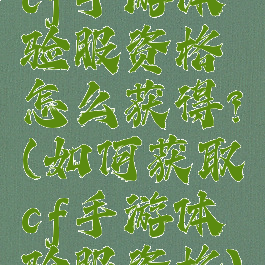 cf手游体
验服资格
怎么获得?
(如何获取
cf手游体
验服资格)